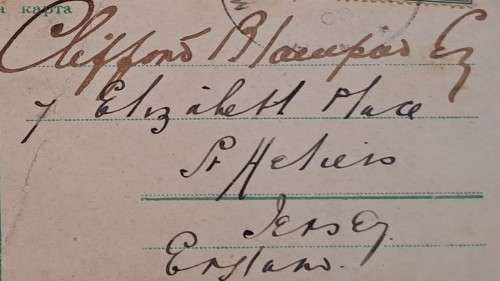 а карта
Clifford Blampied Esq
7 Elizabeth Place
St Heliers
Jersey
England.